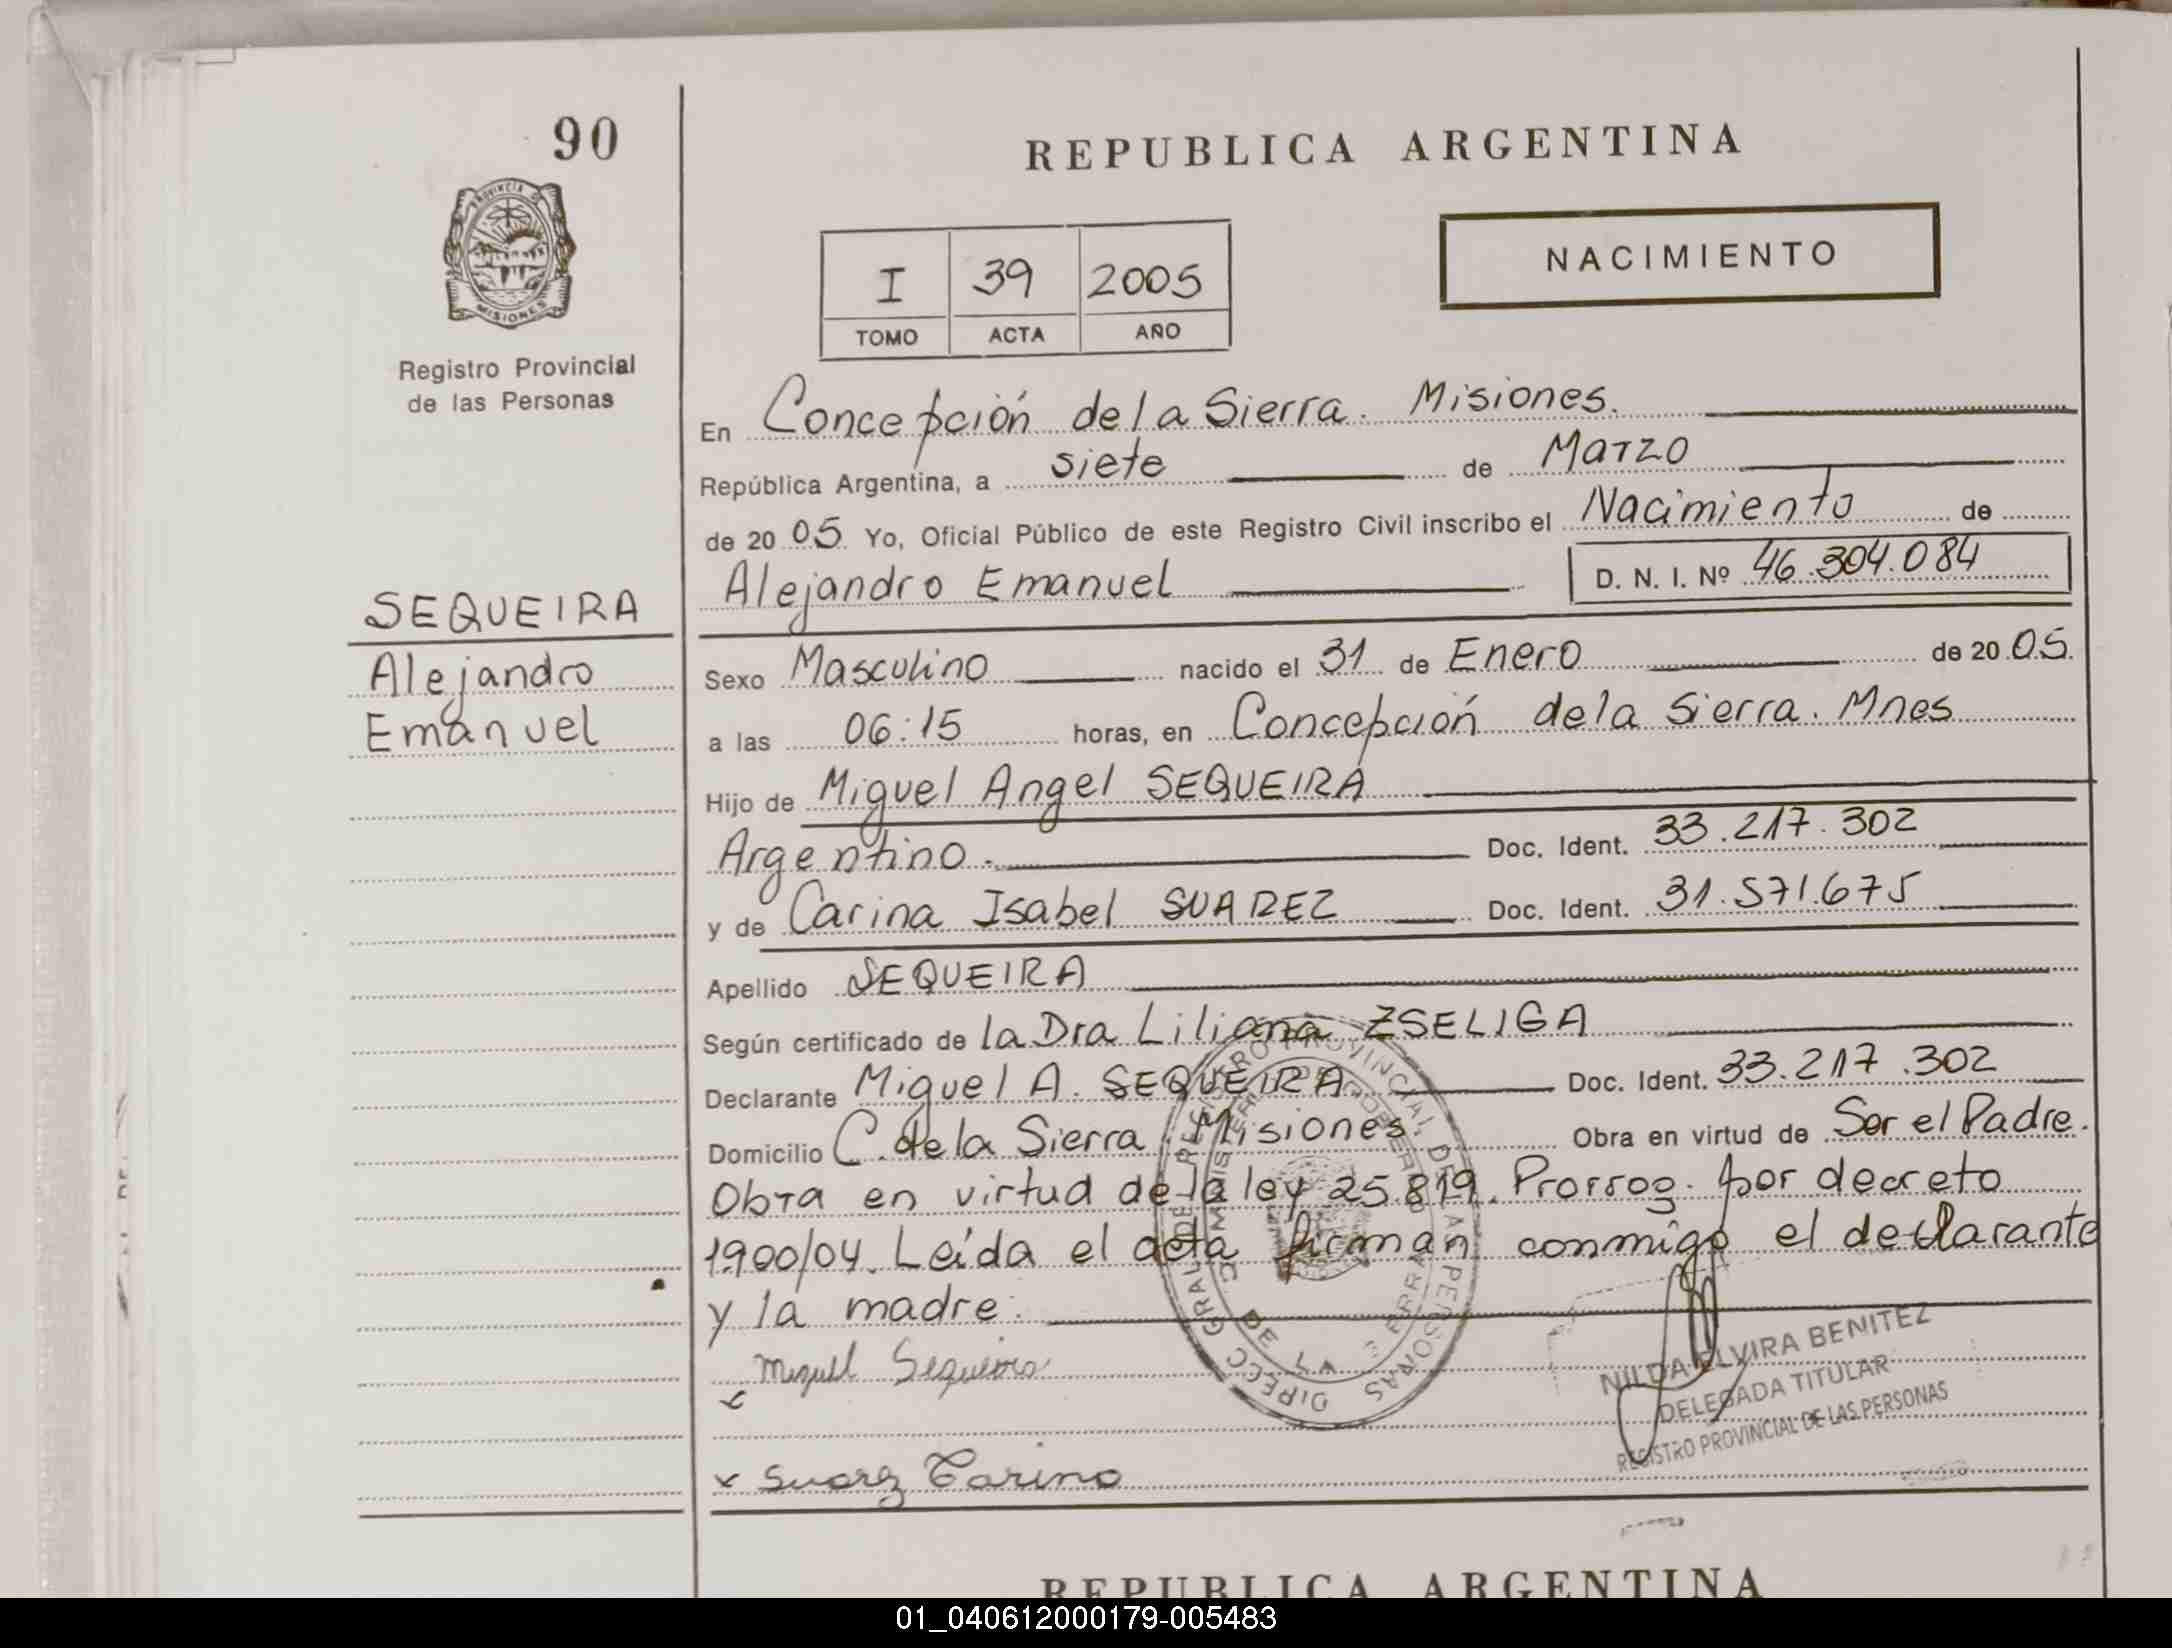 90
REPUBLICA ARGENTINA
PROVINCIA DE
MISIONES
Registro Provincial
de las Personas
I 39 2005
TOMO ACTA AÑO
NACIMIENTO
En Concepción de la Sierra. Misiones.
República Argentina, a siete de Marzo
de 2005 Yo, Oficial Público de este Registro Civil inscribo el Nacimiento de
Alejandro Emanuel D. N. I. Nº 46.304.084
SEQUEIRA
Alejandro
Emanuel
Sexo Masculino nacido el 31 de Enero de 2005.
a las 06:15 horas, en Concepción de la Sierra. Mnes
Hijo de Miguel Angel SEQUEIRA
Argentino. Doc. Ident. 33.217.302
y de Carina Isabel SUAREZ Doc. Ident. 31.571.675
Apellido SEQUEIRA
Según certificado de la Dra Liliana ZSELIGA
Declarante Miguel A. SEQUEIRA Doc. Ident. 33.217.302
Domicilio C. de la Sierra. Misiones Obra en virtud de Ser el Padre.
Obra en virtud de la ley 25.819. Prorrog. por decreto
1900/04. Leída el acta firman conmigo el declarante
y la madre.
Miguel Sequeira
x Suarez Carina
NILDA ELVIRA BENITEZ
DELEGADA TITULAR
REGISTRO PROVINCIAL DE LAS PERSONAS
DIRECC GRAL DE REGISTRO PROVINCIAL DE LAS PERSONAS
REPUBLICA ARGENTINA
01_040612000179-005483